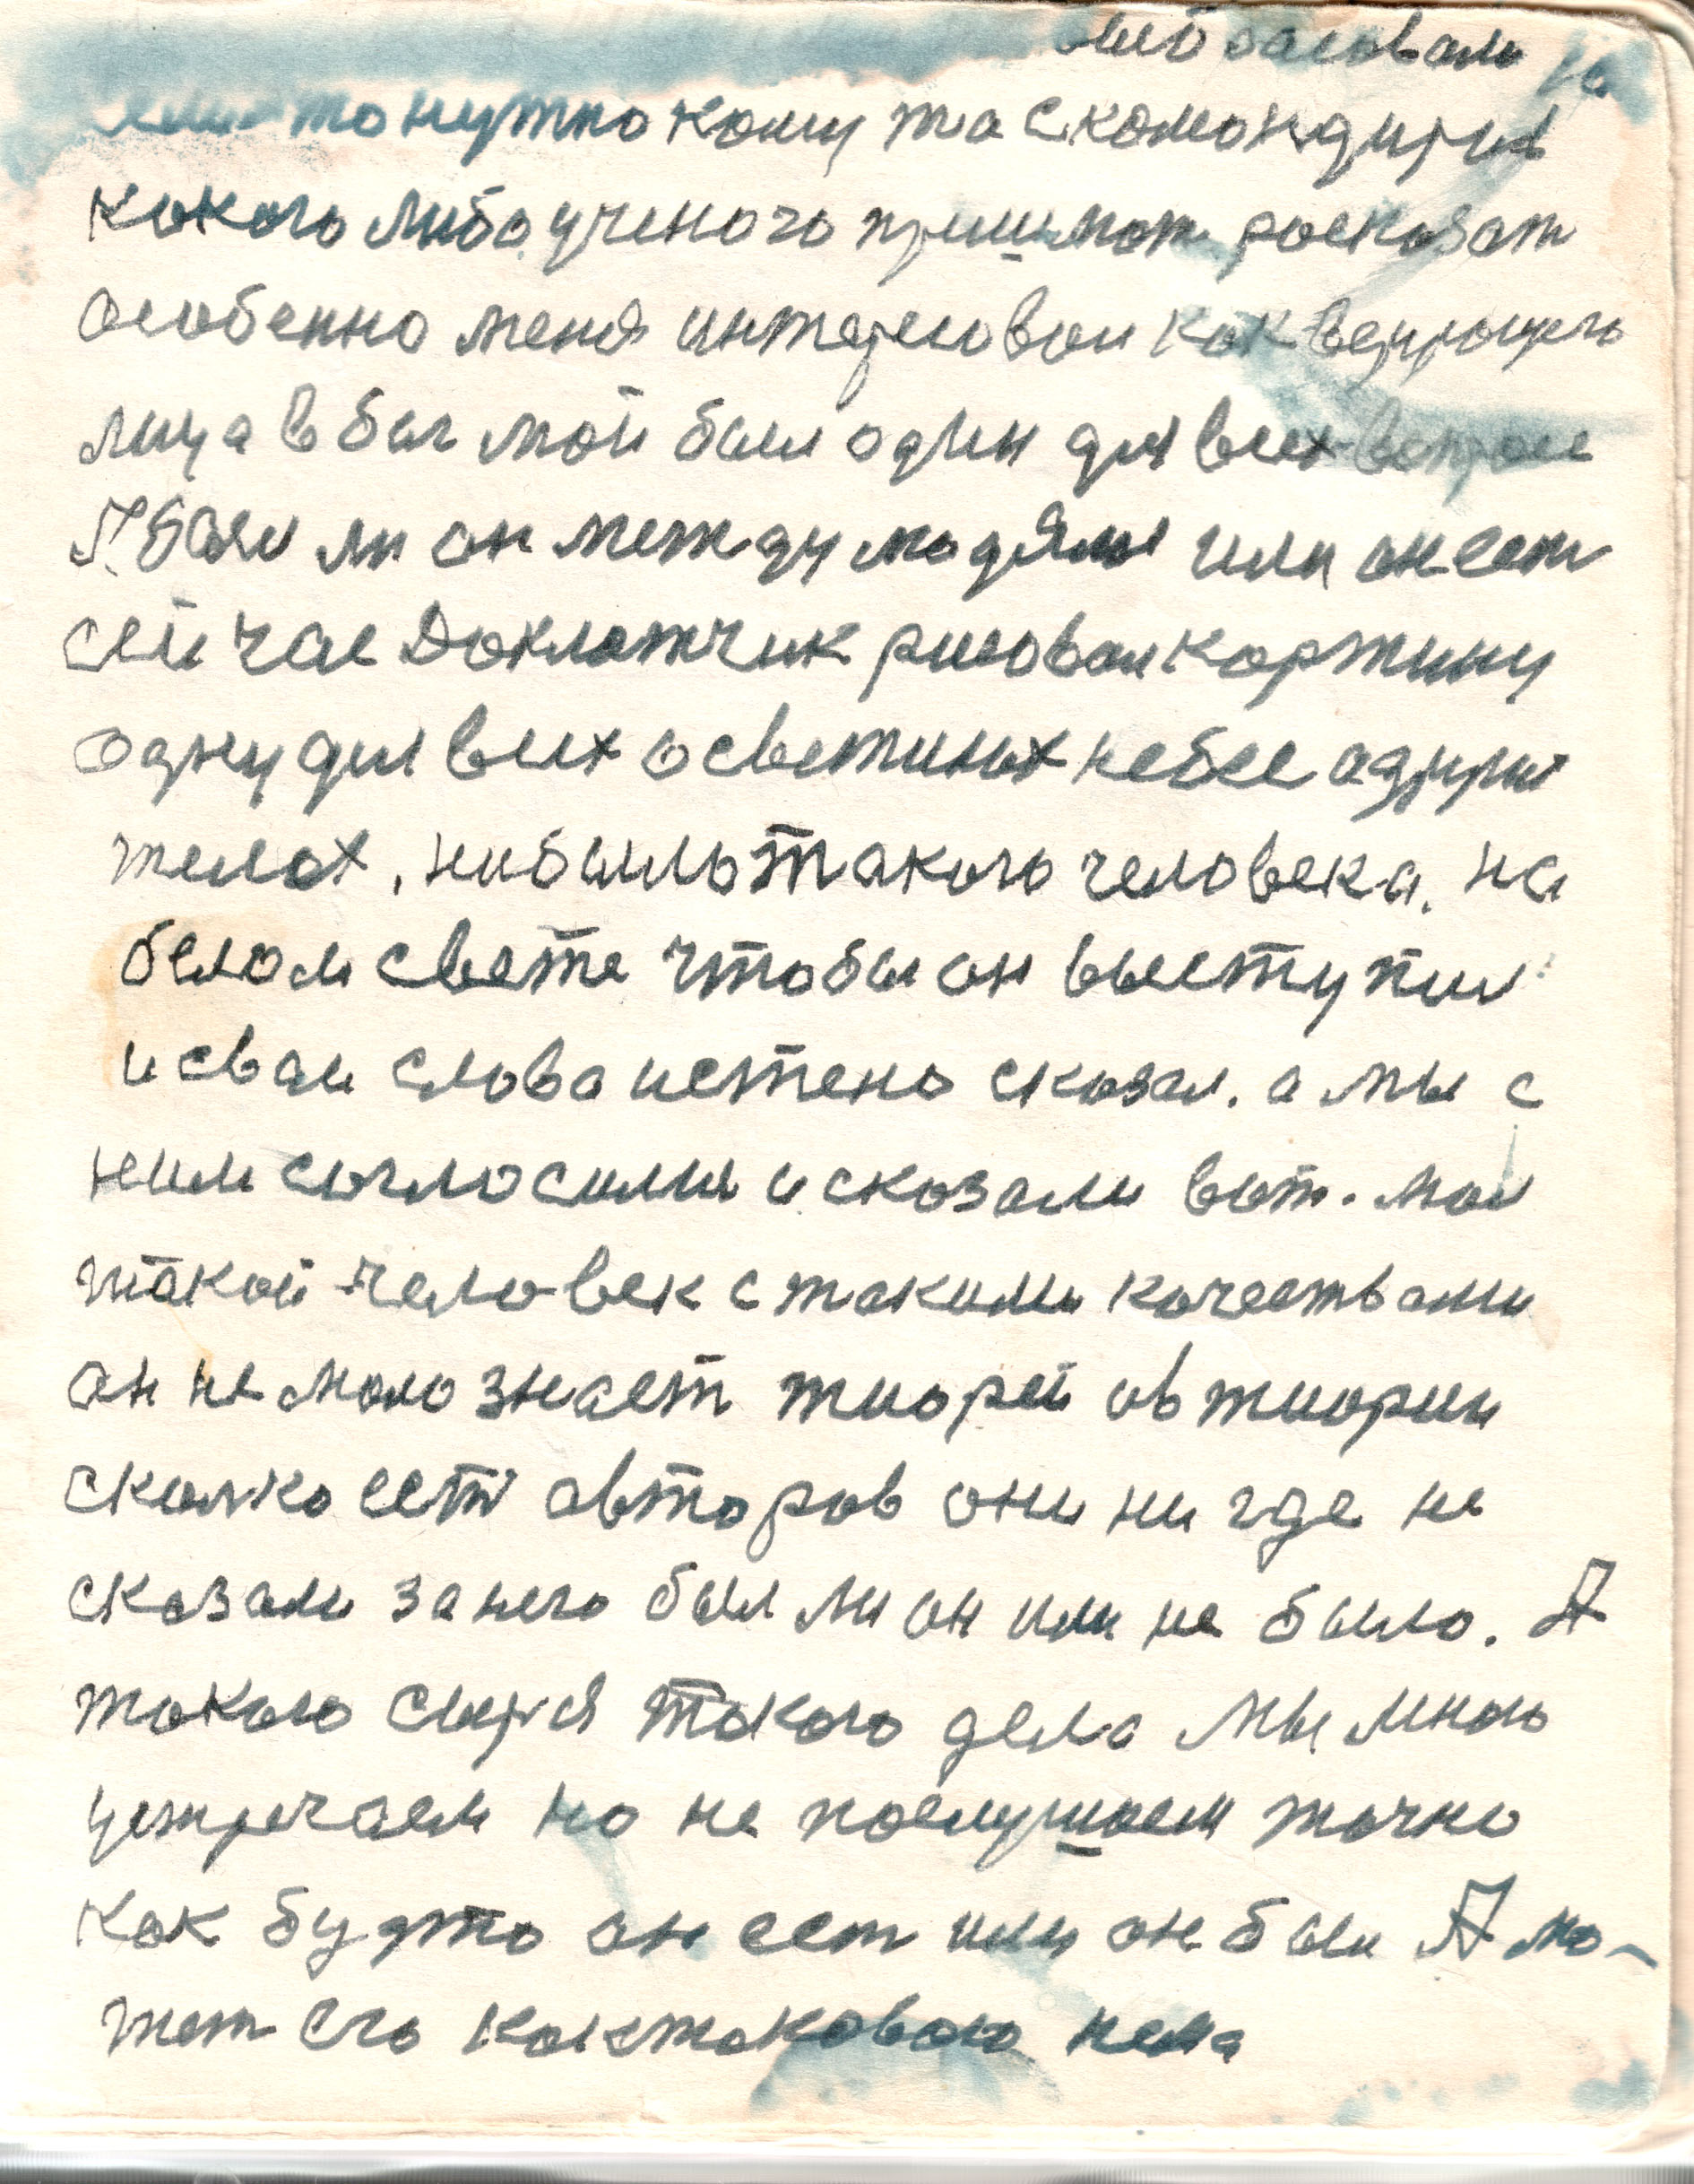 то нужно кому та скомондировать
кокого либо ученого росказат
особенно меня интересовал как верующего
лица в бог мой был один для всех вопрос
А был ли он между людями или он ест
сейчас Доклатчик рисовал картину
одну для всех о светиных небес а других
телах, не было такого человека. на
белом свете чтобы он выступил
и сваи слова истено сказал. а мы с
ним согласились и сказали вот. мол
такой человек с такими качествами
он не мало знает тиорей ов тиории
сколко ест авторов они ни где не
сказали за него был ли он или не было. А
такого слуха такого дела мы много
устречаем но не послушаем точно
как будто он ест или он был А мо-
жет его кактокового нема